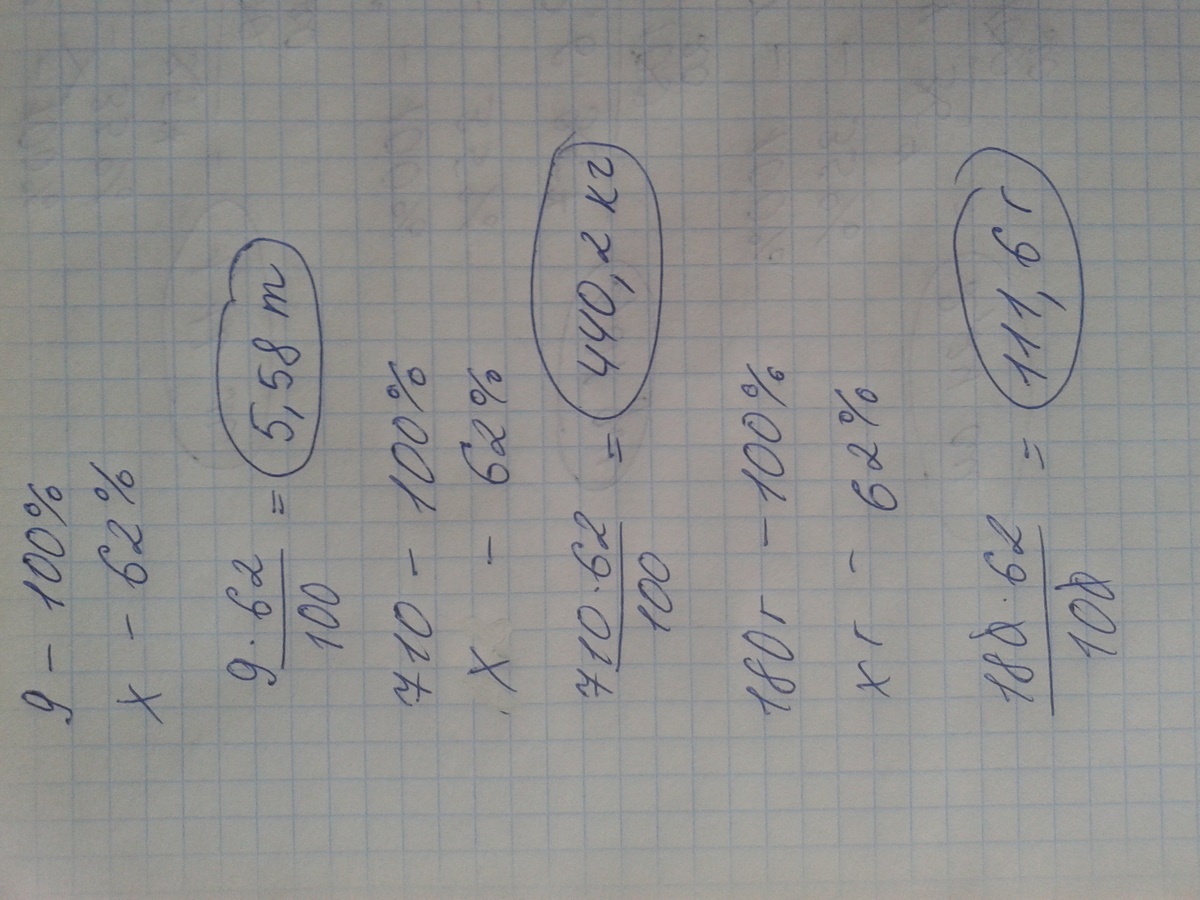 9 - 100%
х - 62%
9 · 62 / 100 = 5,58 т
710 - 100%
х - 62%
710 · 62 / 100 = 440,2 кг
180г - 100%
х г - 62%
180 · 62 / 100 = 111,6 г